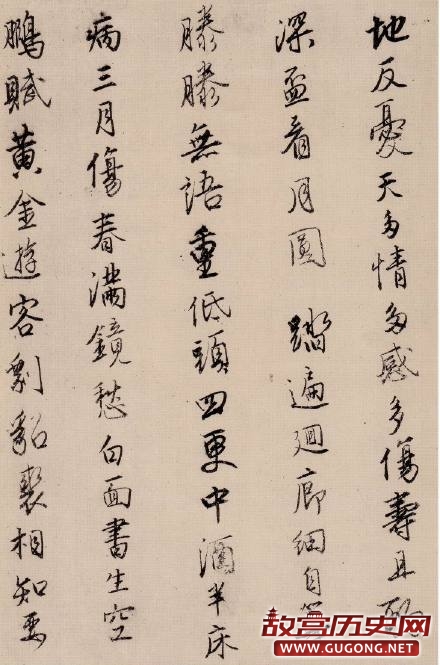 地反憂天多情多感多傷壽且酌
深盃看月圓 踏遍迴廊細自籌
朦朦無語重低頭四更中酒半床
病三月傷春滿鏡愁白面書生空
鵬賦黃金遊客剩貂裘相知要
故宫历史网
WWW.GUGONG.NET